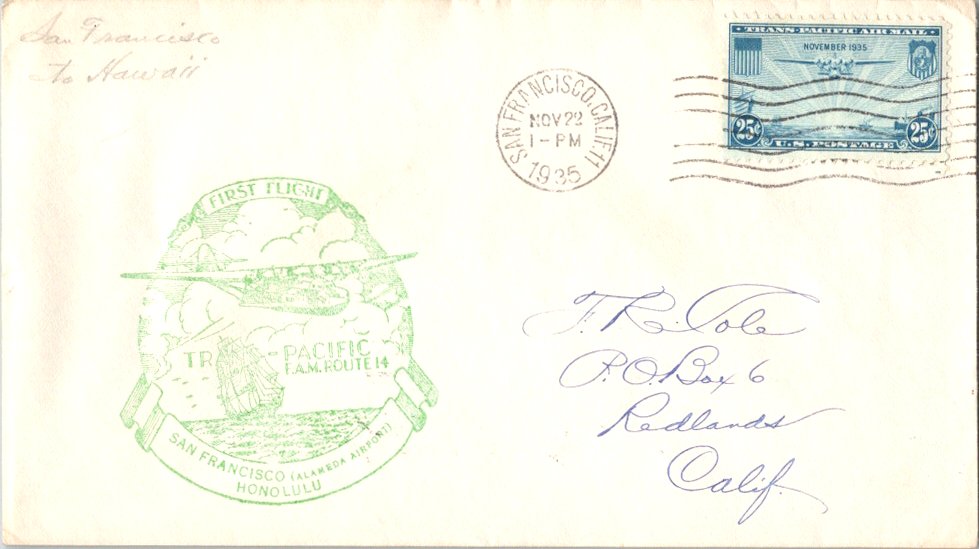 San Francisco
to Hawaii
TRANS-PACIFIC AIR MAIL
NOVEMBER 1935
25¢ 25¢
U.S. POSTAGE
SAN FRANCISCO, CALIF. 11
NOV 22
1 - PM
1935
FIRST FLIGHT
TR - PACIFIC
F.A.M. ROUTE 14
SAN FRANCISCO (ALAMEDA AIRPORT)
HONOLULU
F. R. Tole
P.O. Box 6
Redlands
Calif.